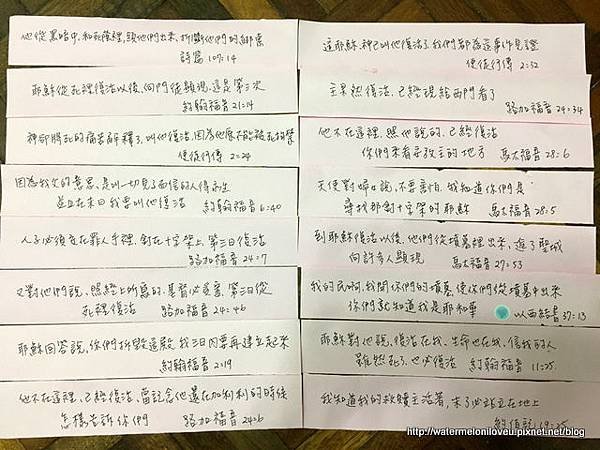 他從黑暗中和死蔭裡領他們出來,折斷他們的綁索
詩篇 107:14
耶穌從死裡復活以後,向門徒顯現,這是第三次
約翰福音 21:14
神卻將死的痛苦解釋了,叫他復活,因為他原不能被死拘禁
使徒行傳 2:24
因為我父的意思,是叫一切見子而信的人得永生
並且在末日我要叫他復活 約翰福音 6:40
人子必須交在罪人手裡,釘在十字架上,第三日復活
路加福音 24:7
又對他們說,照經上所寫的,基督必受害,第三日從
死裡復活 路加福音 24:46
耶穌回答說,你們拆毀這殿,我三日內要再建立起來
約翰福音 2:19
他不在這裡,已經復活,當記念他還在加利利的時候
怎樣告訴你們 路加福音 24:6
這耶穌,神已叫他復活了,我們都為這事作見證
使徒行傳 2:32
主果然復活,已經現給西門看了
路加福音 24:34
他不在這裡,照他說的,已經復活
你們來看安放主的地方 馬太福音 28:6
天使對婦女說,不要害怕,我知道你們是
尋找那釘十字架的耶穌 馬太福音 28:5
到耶穌復活以後,他們從墳墓裡出來,進了聖城
向許多人顯現 馬太福音 27:53
我的民啊,我開你們的墳墓,使你們從墳墓中出來
你們就知道我是耶和華 以西結書 37:13
耶穌對他說,復活在我,生命也在我,信我的人
雖然死了,也必復活 約翰福音 11:25
我知道我的救贖主活著,末了必站立在地上
約伯記 19:25
http://watermeloniloveu.pixnet.net/blog